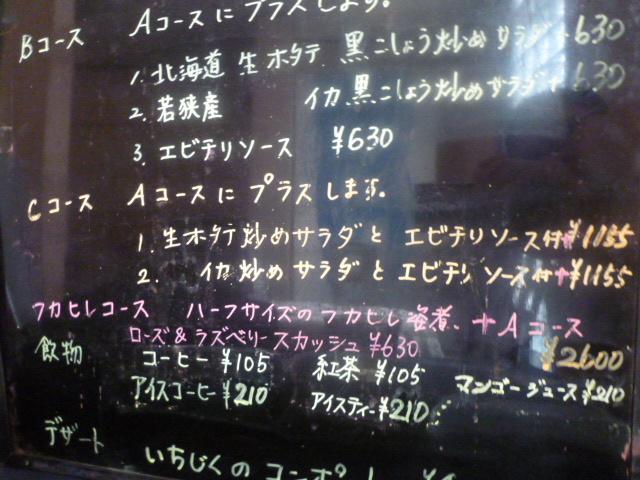 Bコース Aコースにプラスします。
1. 北海道 生ホタテ 黒こしょう炒めサラダ +630
2. 若狭産 イカ 黒こしょう炒めサラダ +630
3. エビチリソース ¥630
Cコース Aコースにプラスします。
1. 生ホタテ炒めサラダと エビチリソース付 +¥1155
2. イカ炒めサラダと エビチリソース付 +¥1155
フカヒレコース ハーフサイズのフカヒレ姿煮、+Aコース
¥2600
ローズ&ラズベリースカッシュ ¥630
飲物 コーヒー ¥105 紅茶 ¥105 マンゴージュース ¥210
アイスコーヒー ¥210 アイスティー ¥210
デザート
いちじくのコンポート